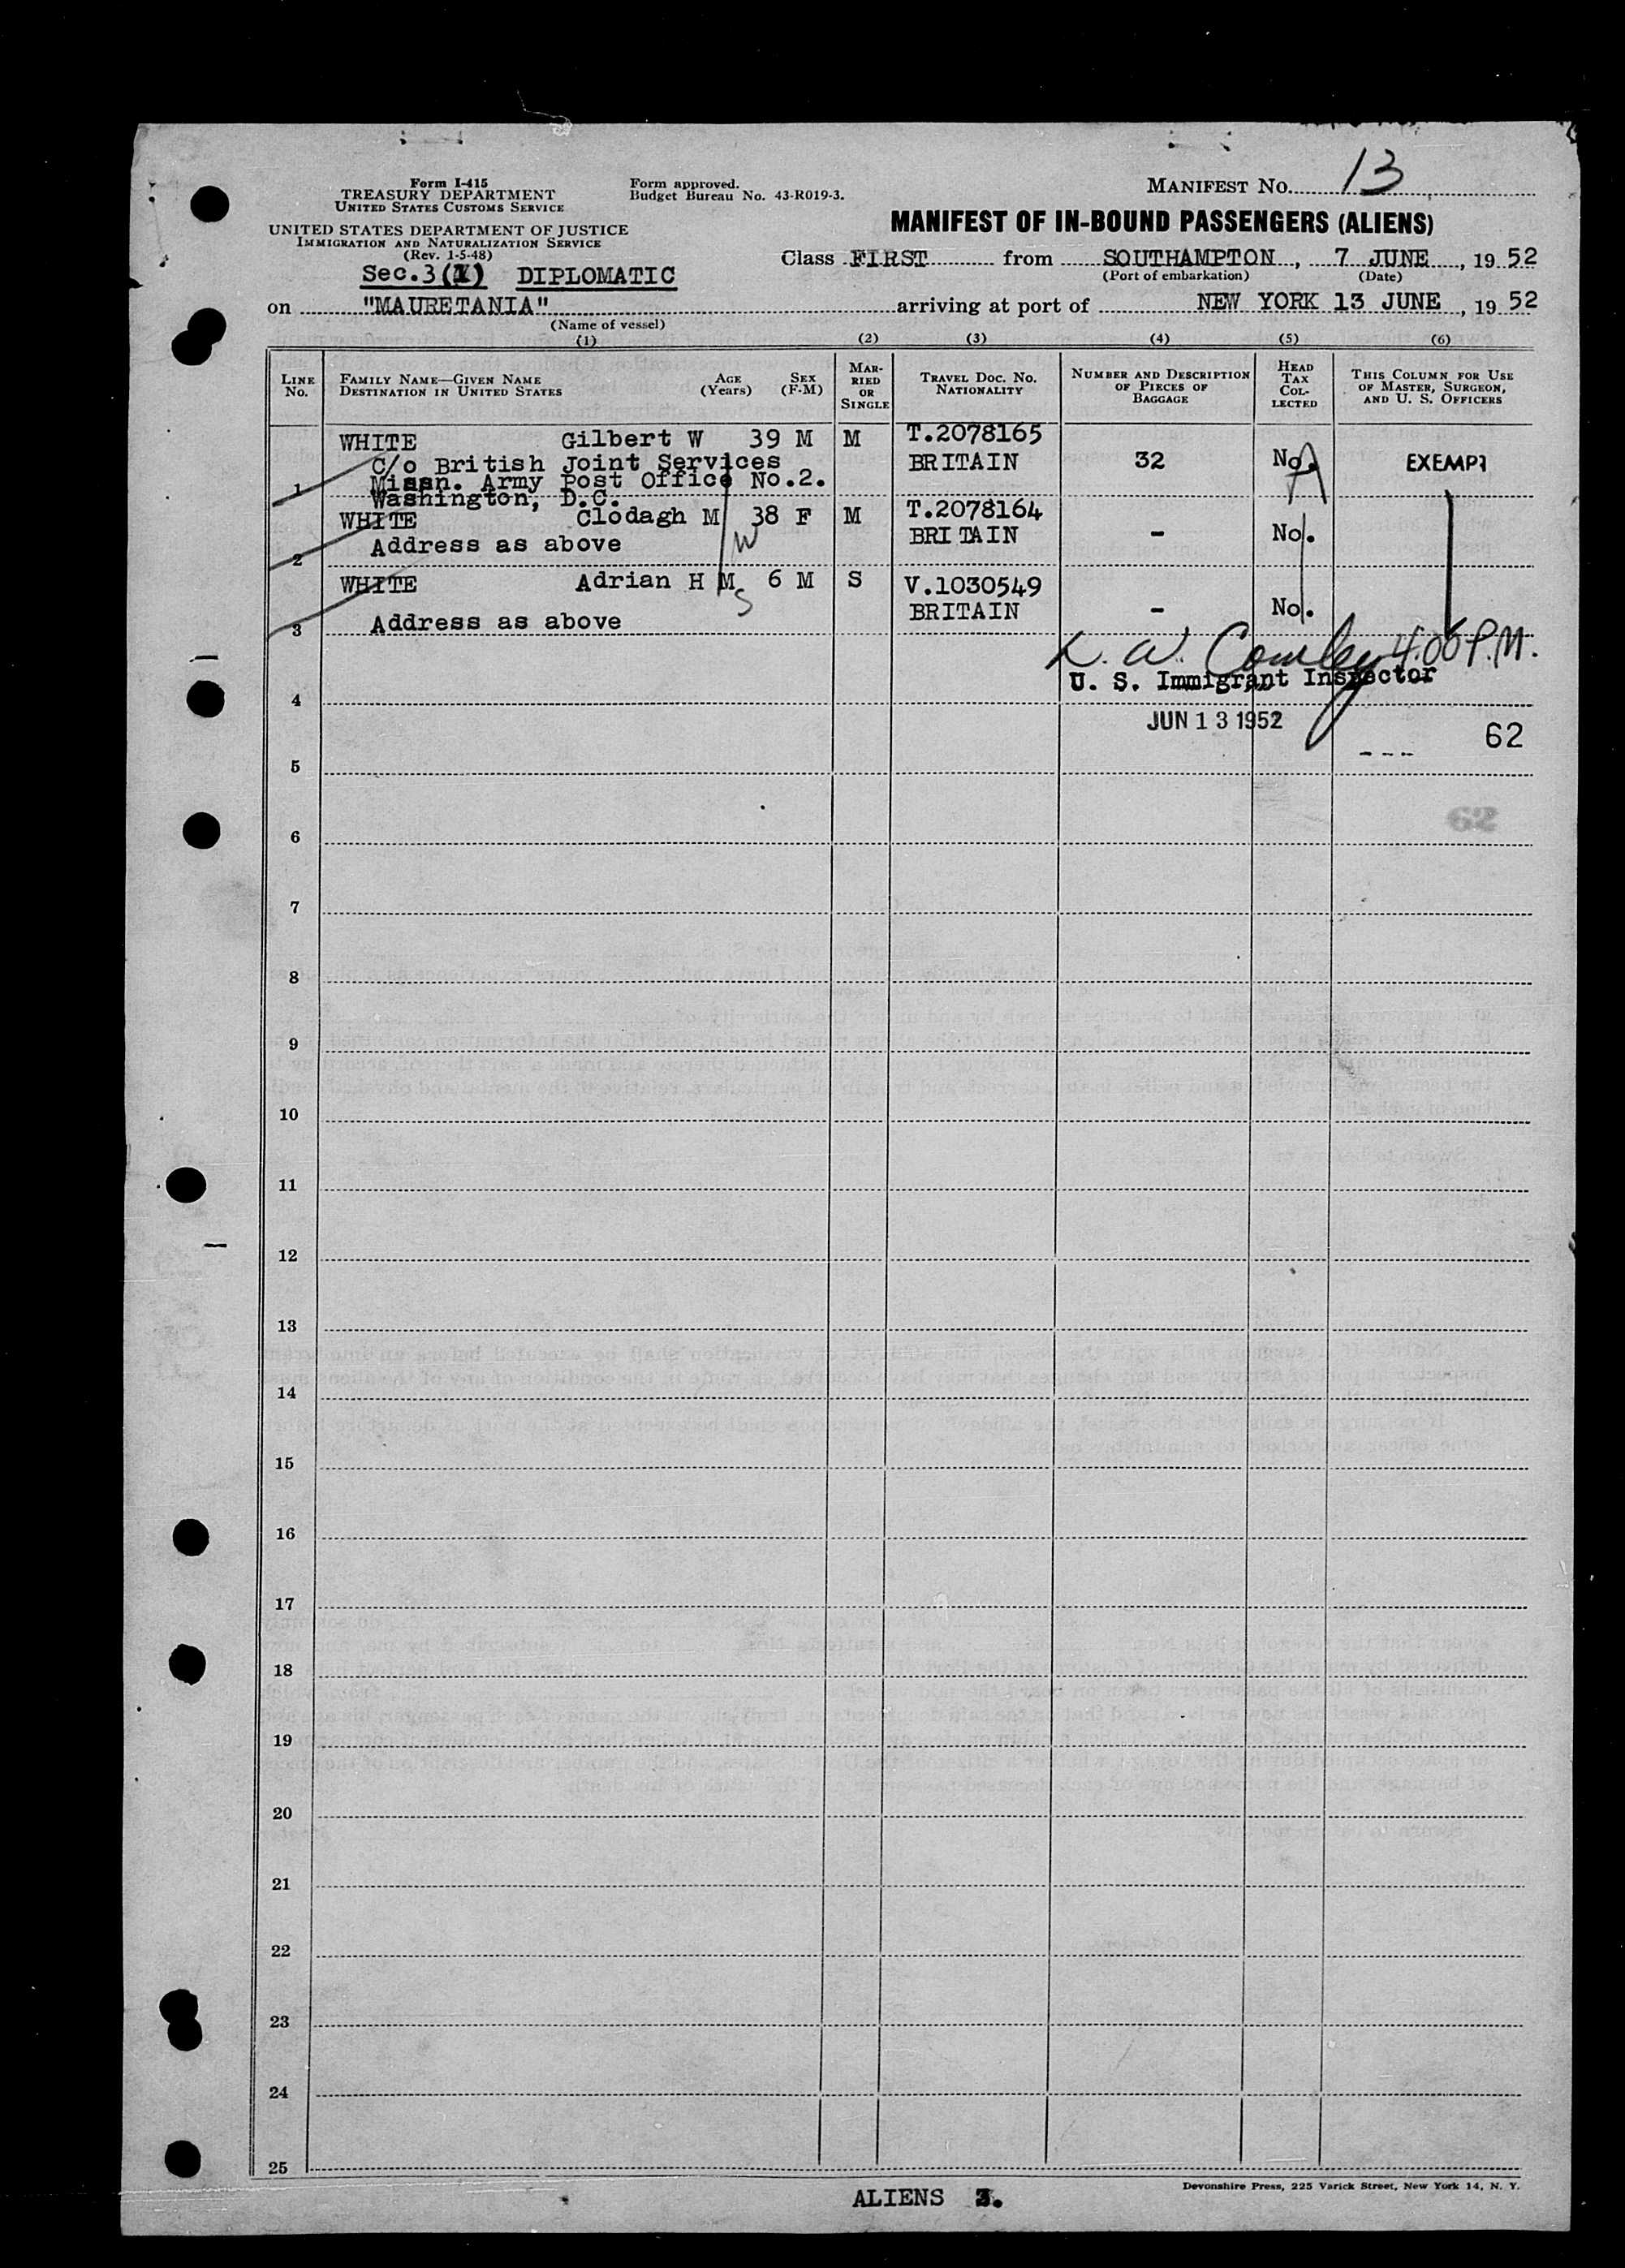 Form I-415
TREASURY DEPARTMENT
UNITED STATES CUSTOMS SERVICE
UNITED STATES DEPARTMENT OF JUSTICE
IMMIGRATION AND NATURALIZATION SERVICE
(Rev. 1-5-48)
Form approved.
Budget Bureau No. 43-R019-3.
MANIFEST NO. 13
MANIFEST OF IN-BOUND PASSENGERS (ALIENS)
Class FIRST from SOUTHAMPTON, 7 JUNE, 19 52
(Port of embarkation) (Date)
Sec.3(1) DIPLOMATIC
on "MAURETANIA" arriving at port of NEW YORK 13 JUNE, 19 52
(Name of vessel)
(1) (2) (3) (4) (5) (6)
LINE NO.
FAMILY NAME—GIVEN NAME
DESTINATION IN UNITED STATES
AGE (Years)
SEX (F-M)
MARRIED OR SINGLE
TRAVEL DOC. NO.
NATIONALITY
NUMBER AND DESCRIPTION
OF PIECES OF
BAGGAGE
HEAD
TAX
COL-
LECTED
THIS COLUMN FOR USE
OF MASTER, SURGEON,
AND U. S. OFFICERS
WHITE Gilbert W 39 M M T.2078165
C/o British Joint Services BRITAIN 32 No. A EXEMPT
1 Missn. Army Post Office No.2.
Washington, D.C.
WHITE Clodagh M 38 F M T.2078164
W
2 Address as above BRITAIN - No.
WHITE Adrian H M 6 M S V.1030549
S
3 Address as above BRITAIN - No.
4.00 P.M.
U. S. Immigrant Inspector
4
JUN 13 1952
--- 62
5
6
7
8
9
10
11
12
13
14
15
16
17
18
19
20
21
22
23
24
25
ALIENS 3.
Devonshire Press, 225 Varick Street, New York 14, N. Y.